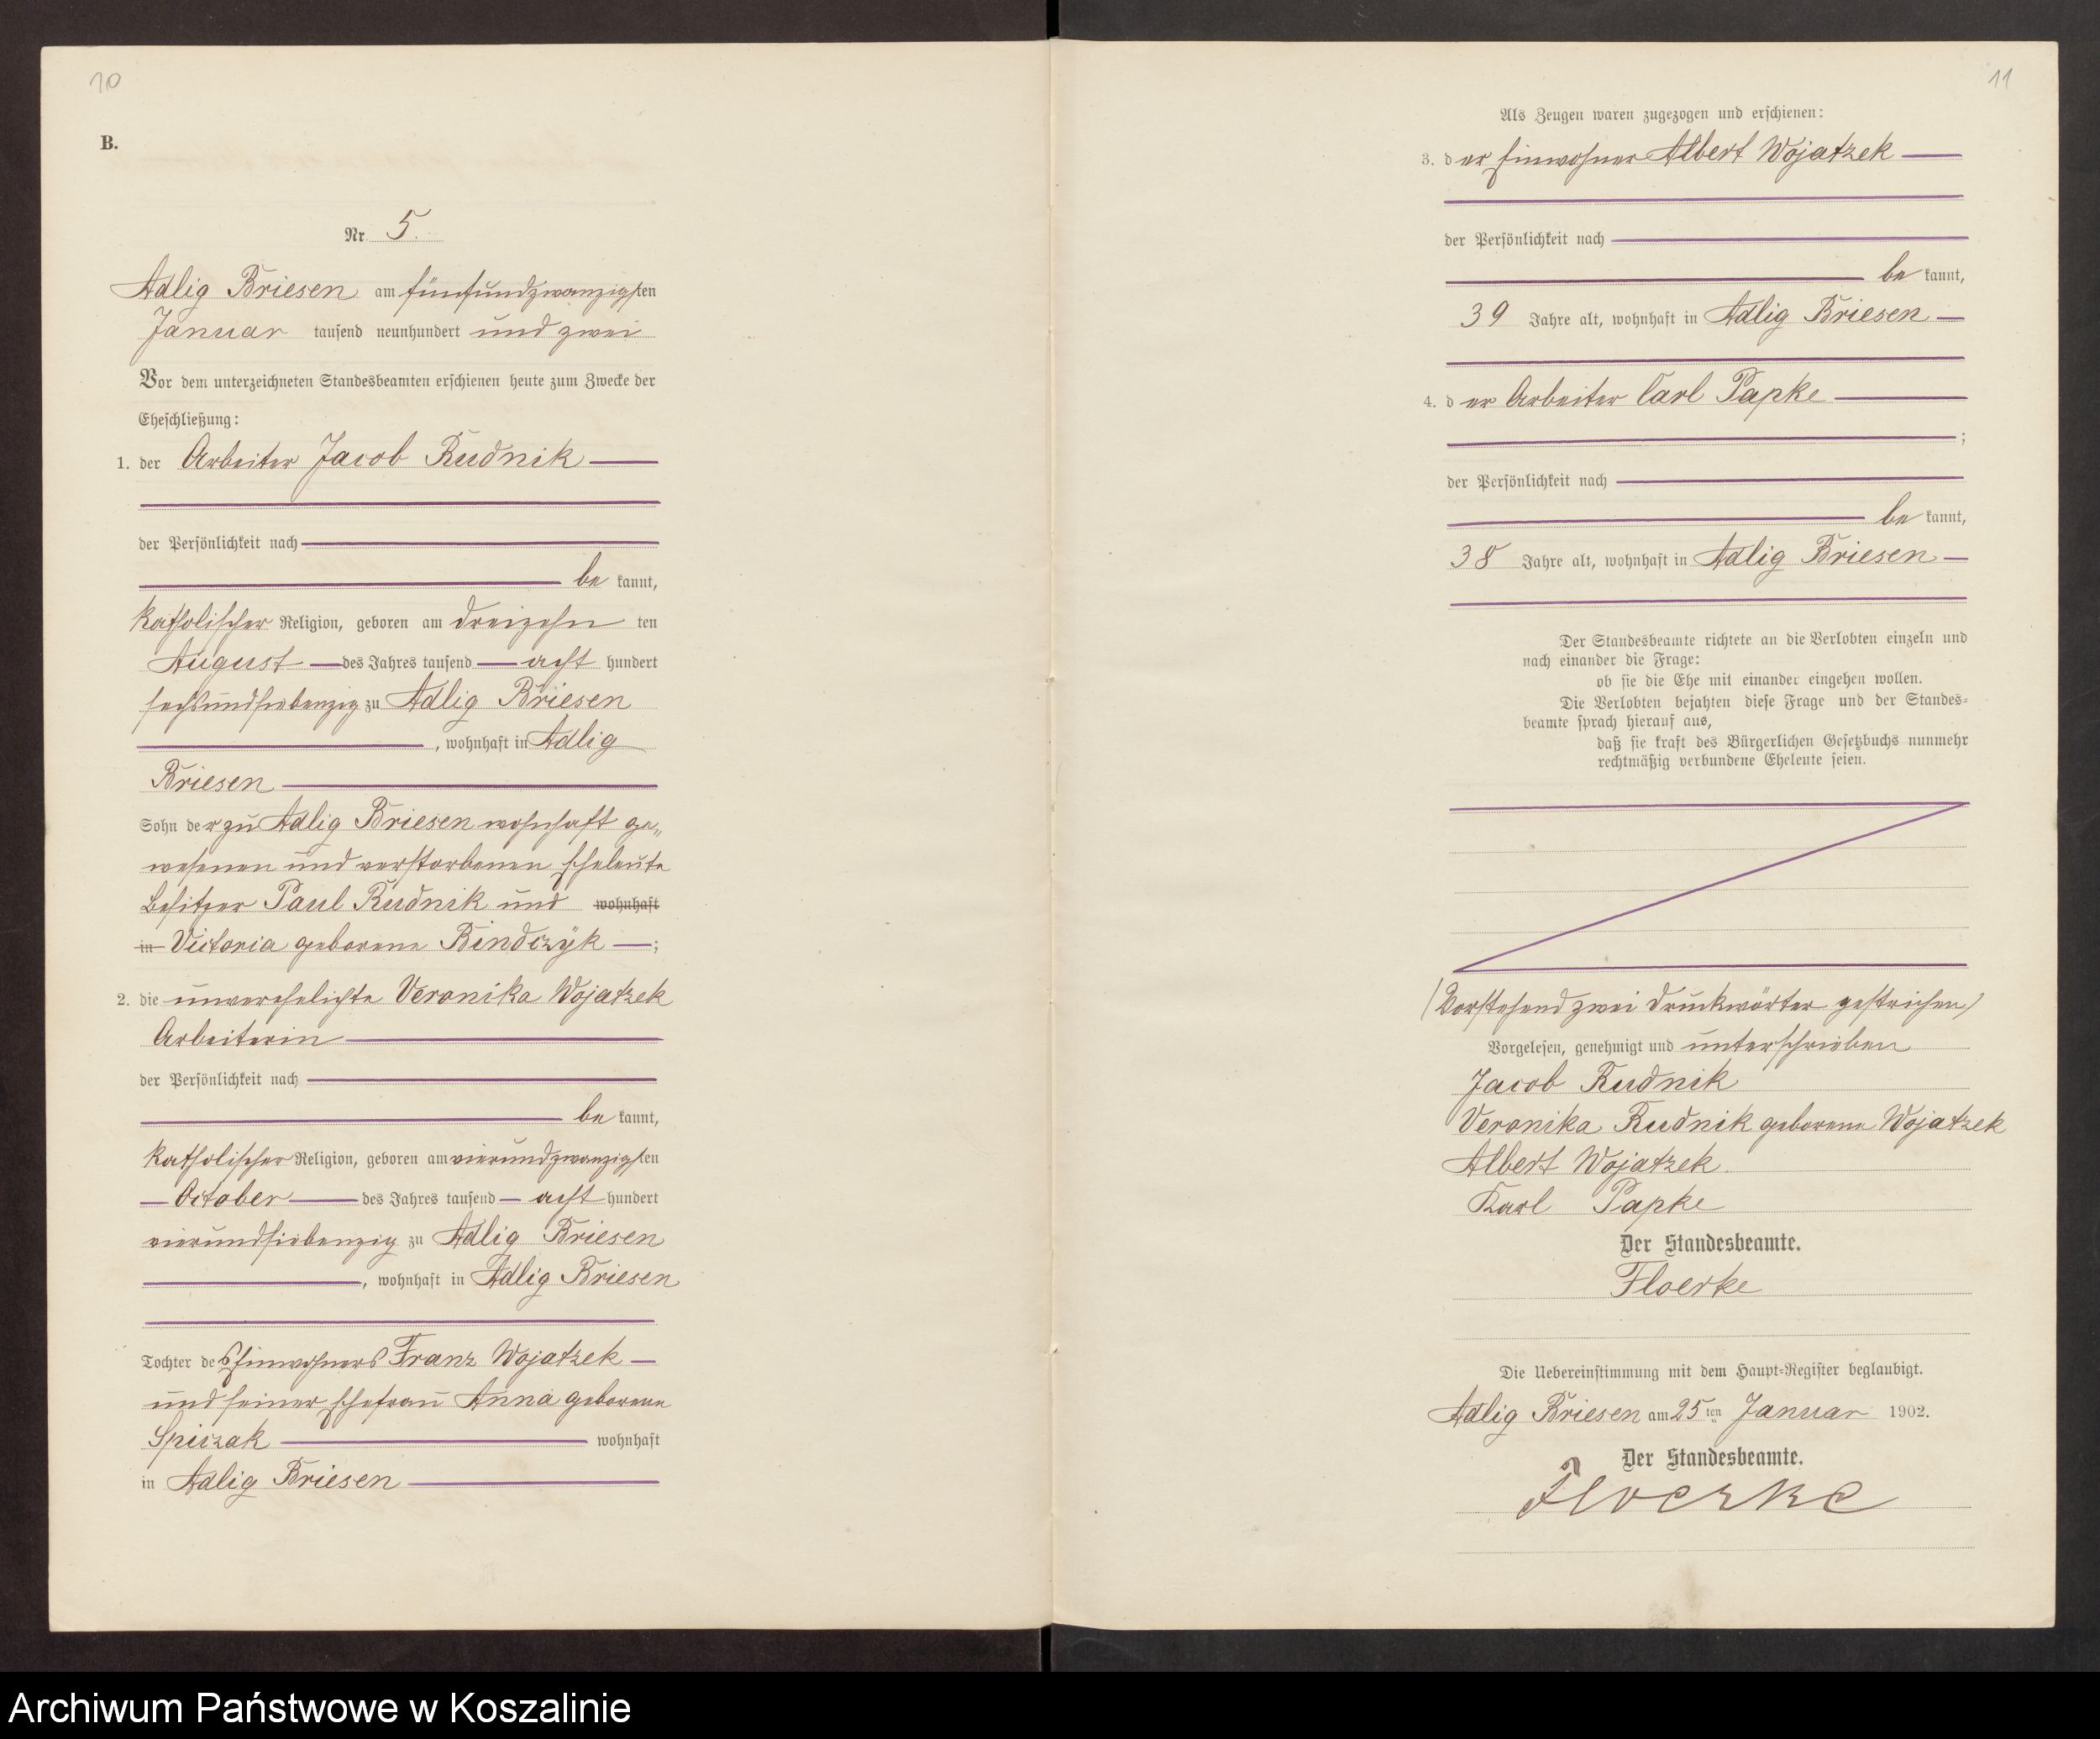 10
B.
Nr. 5.
Adlig Briesen am fünfundzwanzigsten
Januar tausend neunhundert und zwei
Vor dem unterzeichneten Standesbeamten erschienen heute zum Zwecke der
Eheschließung:
1. der Arbeiter Jacob Rudnik
der Persönlichkeit nach
be kannt,
katholischer Religion, geboren am dreizehn ten
August des Jahres tausend acht hundert
sechsundsiebenzig zu Adlig Briesen
, wohnhaft in Adlig
Briesen
Sohn der zu Adlig Briesen wohnhaft ge„
wesenen und verstorbenen Eheleute
Besitzer Paul Rudnik und wohnhaft
in Victoria geborene Bindczÿk ;
2. die unverehelichte Veronika Wojatzek
Arbeiterin
der Persönlichkeit nach
be kannt,
katholischer Religion, geboren am vierundzwanzigsten
October des Jahres tausend acht hundert
vierundsiebenzig zu Adlig Briesen
, wohnhaft in Adlig Briesen
Tochter des Einwohners Franz Wojatzek
und seiner Ehefrau Anna geborene
Spiczak wohnhaft
in Adlig Briesen
11
Als Zeugen waren zugezogen und erschienen:
3. der Einwohner Albert Wojatzek
der Persönlichkeit nach
be kannt,
39 Jahre alt, wohnhaft in Adlig Briesen
4. der Arbeiter Carl Papke
;
der Persönlichkeit nach
be kannt,
38 Jahre alt, wohnhaft in Adlig Briesen
Der Standesbeamte richtete an die Verlobten einzeln und
nach einander die Frage:
ob sie die Ehe mit einander eingehen wollen.
Die Verlobten bejahten diese Frage und der Standes-
beamte sprach hierauf aus,
daß sie kraft des Bürgerlichen Gesetzbuchs nunmehr
rechtmäßig verbundene Eheleute seien.
(Vorstehend zwei Druckwörter gestrichen)
Vorgelesen, genehmigt und unterschrieben
Jacob Rudnik
Veronika Rudnik geborene Wojatzek
Albert Wojatzek.
Karl Papke
Der Standesbeamte.
Floerke
Die Uebereinstimmung mit dem Haupt-Register beglaubigt.
Adlig Briesen am 25 ten Januar 1902.
Der Standesbeamte.
Floerke
Archiwum Państwowe w Koszalinie